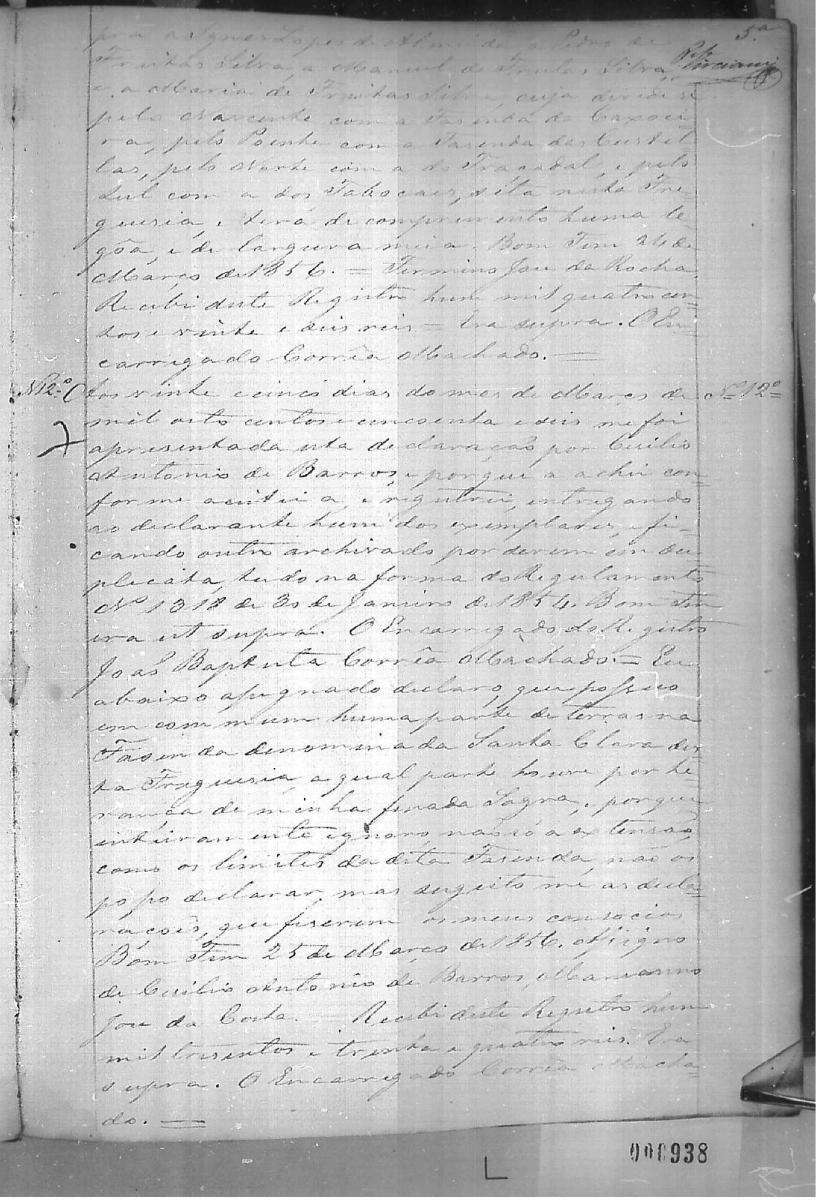 5.ª
pra a Ignes Lopes de Almeida, a Pedro de
Freitas Silva, a Manuel de Freitas Silva,
e a Maria de Freitas Silva, cuja devide se
pelo Nascente com a Fasenda da Caxoei-
ra, pelo Poente com a Fasenda das Custil-
las, pelo Norte com a do Tracadal, e pelo
Sul com a dos Tabocaes, sita nesta Fre-
guesia, e terá de comprimento huma le-
gôa, e de largura meia. Bom Fim 24 de
Março de 1856. = Firmino Jose da Rocha
Recebi deste Registro hum mil quatro cen-
tos e vinte e seis reis = Era supra. O En-
carregado Corrêa Machado. =
Nº 12º Aos vinte e cinco dias do mes de Março de Nº 12º
mil oito centos e cincoenta e seis me foi
apresentada esta declaração por Cecilio
Antonio de Barros, e porque a achei con-
forme aceitei a, e registrei, entregando
ao declarante hum dos exemplares, e fi-
cando outro archivado por serem em du-
plicata, tudo na forma do Regulamento
Nº 1318 de 30 de Janeiro de 1854. Bom Fim
era ut supra. O Encarregado do Registro
João Baptista Corrêa Machado. = Eu
abaixo assignado declaro, que possuo
em commum huma parte de terras na
Fasenda denominada Santa Clara des-
ta Freguesia, a qual parte houve por he-
rança de minha finada Sogra, e porque
inteiramente ignoro, não só a extensão,
como os limites da dita Fasenda, não os
posso declarar, mas sugeito me as decla-
rações, que fiserem os meus consocios
Bom Fim 25 de Março de 1856. Assigno
de Cecilio Antonio de Barros, Marianno
Jose da Costa. = Recebi deste Registro hum
mil tresentos e trenta e quatro reis. Era
supra. O Encarregado Corrêa Macha-
do. =
000938